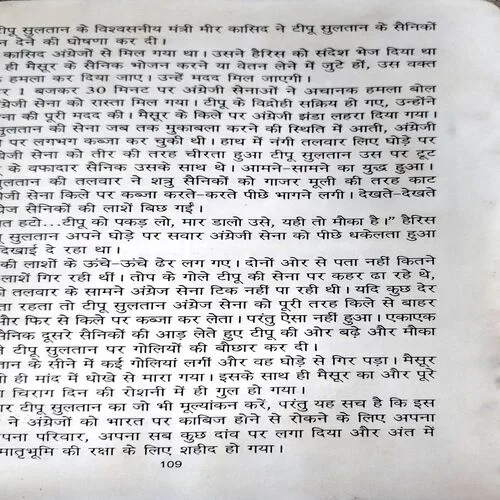 टीपू सुलतान के विश्वसनीय मंत्री मीर कासिद ने टीपू सुलतान के सैनिकों
न देने की घोषणा कर दी।
कासिद अंग्रेजों से मिल गया था। उसने हैरिस को संदेश भेज दिया था
ही मैसूर के सैनिक भोजन करने या वेतन लेने में जुटे हों, उस वक्त
हमला कर दिया जाए। उन्हें मदद मिल जाएगी।
र 1 बजकर 30 मिनट पर अंग्रेजी सेनाओं ने अचानक हमला बोल
ग्रेजी सेना को रास्ता मिल गया। टीपू के विद्रोही सक्रिय हो गए, उन्होंने
ना की पूरी मदद की। मैसूर के किले पर अंग्रेजी झंडा लहरा दिया गया।
सुलतान की सेना जब तक मुकाबला करने की स्थिति में आती, अंग्रेजी
पर लगभग कब्जा कर चुकी थी। हाथ में नंगी तलवार लिए घोड़े पर
ग्रेजी सेना को तीर की तरह चीरता हुआ टीपू सुलतान उस पर टूट
के वफादार सैनिक उसके साथ थे। आमने-सामने का युद्ध हुआ।
लतान की तलवार ने शत्रु सैनिकों को गाजर मूली की तरह काट
ग्रेजी सेना किले पर कब्जा करते-करते पीछे भागने लगी। देखते-देखते
ज सैनिकों की लाशें बिछ गईं।
त हटो...टीपू को पकड़ लो, मार डालो उसे, यही तो मौका है।” हैरिस
सुलतान अपने घोड़े पर सवार अंग्रेजी सेना को पीछे धकेलता हुआ
दिखाई दे रहा था।
की लाशों के ऊंचे-ऊंचे ढेर लग गए। दोनों ओर से पता नहीं कितने
लाशें गिर रही थीं। तोप के गोले टीपू की सेना पर कहर ढा रहे थे,
की तलवार के सामने अंग्रेज सेना टिक नहीं पा रही थी। यदि कुछ देर
ता रहता तो टीपू सुलतान अंग्रेज सेना को पूरी तरह किले से बाहर
और फिर से किले पर कब्जा कर लेता। परंतु ऐसा नहीं हुआ। एकाएक
सैनिक दूसरे सैनिकों की आड़ लेते हुए टीपू की ओर बढ़े और मौका
टीपू सुलतान पर गोलियों की बौछार कर दी।
तान के सीने में कई गोलियां लगीं और वह घोड़े से गिर पड़ा। मैसूर
ही मांद में धोखे से मारा गया। इसके साथ ही मैसूर का और पूरे
चिराग दिन की रोशनी में ही गुल हो गया।
र टीपू सुलतान का जो भी मूल्यांकन करें, परंतु यह सच है कि इस
ने अंग्रेजों को भारत पर काबिज होने से रोकने के लिए अपना
पना परिवार, अपना सब कुछ दांव पर लगा दिया और अंत में
मातृभूमि की रक्षा के लिए शहीद हो गया।
109